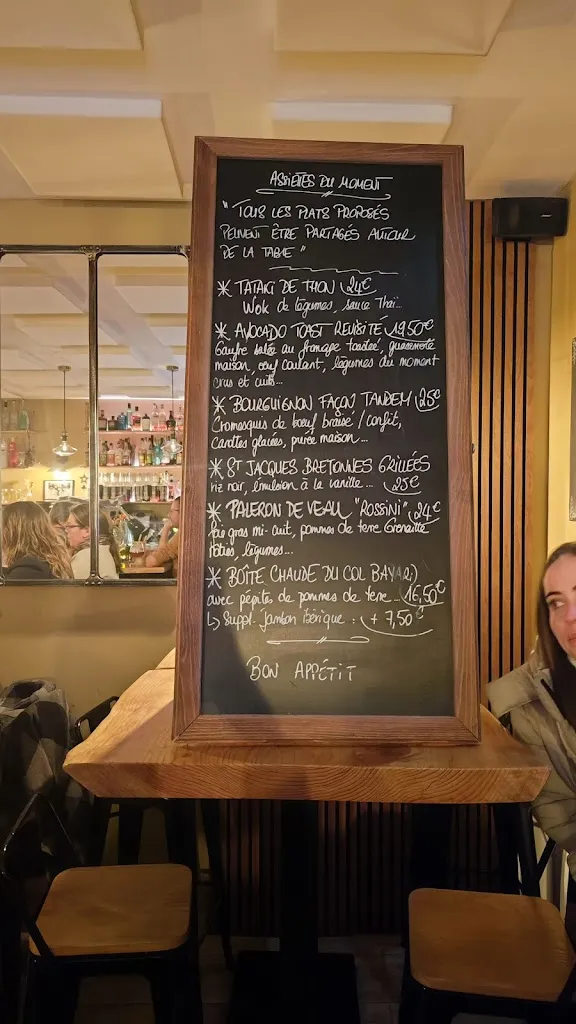 ASSIETES DU MOMENT
"TOUS LES PLATS PROPOSÉS
PEUVENT ÊTRE PARTAGÉS AUTOUR
DE LA TABLE"
* TATAKI DE THON 24€
Wok de légumes, sauce Thaï...
* AVOCADO TOAST REVISITÉ 19,50€
Gaufre salée au fromage toastée, guacamole
maison, oeuf coulant, légumes du moment
crus et cuits...
* BOURGUIGNON FAÇON TANDEM 25€
Cromesquis de boeuf braisé / confit,
carottes glacées, purée maison...
* ST JACQUES BRETONNES GRILLÉES
riz noir, émulsion à la vanille... 25€
* PALERON DE VEAU "ROSSINI" 24€
foie gras mi-cuit, pommes de terre Grenaille
rôties, légumes...
* BOÎTE CHAUDE DU COL BAYARD
avec pépites de pommes de terre... 16,50€
↳ Suppl. Jambon ibérique : + 7,50€
BON APPÉTIT